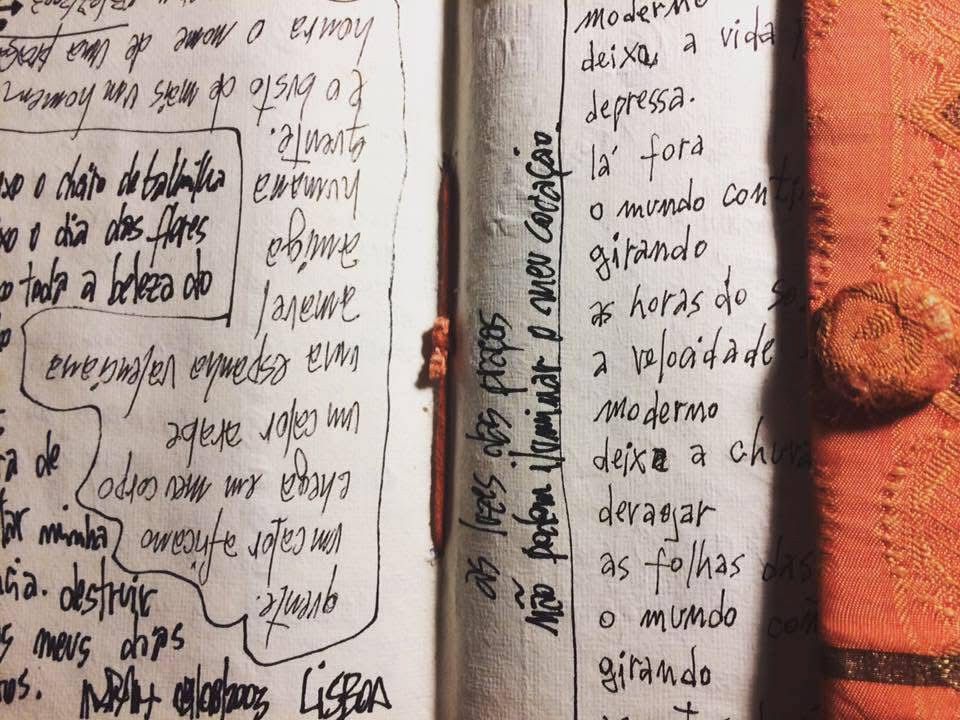 o cheiro de
o dia das flores
toda a beleza do
de
minha
destruir
meus dias
LISBOA
quente.
um calor africano
chega em meu corpo
um calor arabe
uma espanha valenciana
amável
amiga
humana
quente.
e o busto de mais um homem
honra o nome de uma praça
as luzes das praças
não podem iluminar o meu coração.
moderno
deixa a vida
depressa.
lá fora
o mundo conti
girando
as horas do
a velocidade
moderno
deixa a chuva
as folhas das
o mundo con
girando